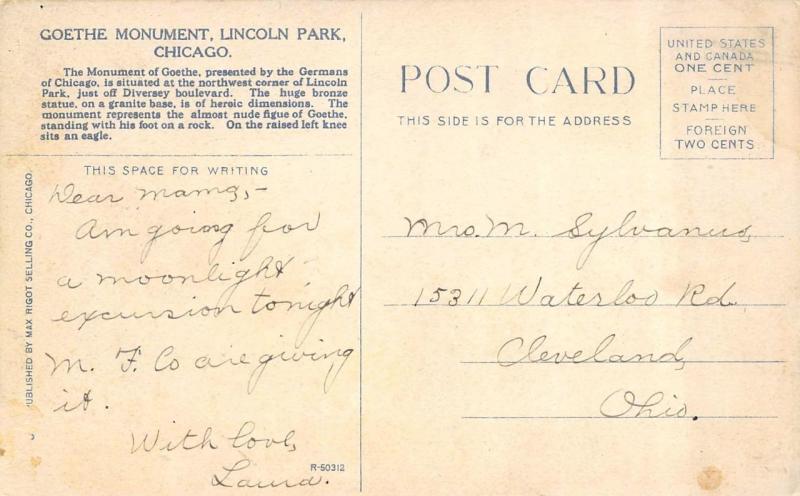 GOETHE MONUMENT, LINCOLN PARK,
CHICAGO.
The Monument of Goethe, presented by the Germans
of Chicago, is situated at the northwest corner of Lincoln
Park, just off Diversey boulevard. The huge bronze
statue, on a granite base, is of heroic dimensions. The
monument represents the almost nude figue of Goethe,
standing with his foot on a rock. On the raised left knee
sits an eagle.
THIS SPACE FOR WRITING
Dear Mama,-
Am going for
a moonlight
excursion tonight
M. F. Co are giving
it.
With love,
Laura.
R-50312
PUBLISHED BY MAX RIGOT SELLING CO., CHICAGO.
POST CARD
THIS SIDE IS FOR THE ADDRESS
UNITED STATES
AND CANADA
ONE CENT
PLACE
STAMP HERE
FOREIGN
TWO CENTS
Mrs. M. Sylvanus,
15311 Waterloo Rd.
Cleveland,
Ohio.